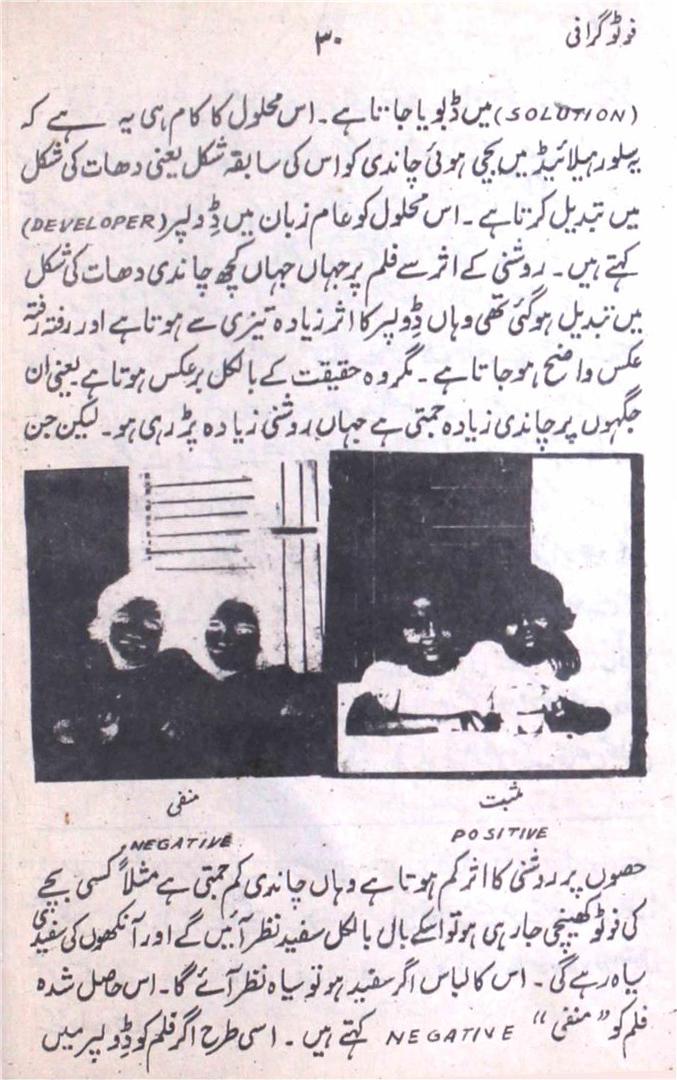 فوٹو گرافی
۳۰
(SOLUTION) میں ڈبویا جاتا ہے۔ اس محلول کا کام ہی یہ ہے کہ
یہ سلور ہیلائیڈ میں بچی ہوئی چاندی کو اس کی سابقہ شکل یعنی دھات کی شکل
میں تبدیل کرتا ہے۔ اس محلول کو عام زبان میں ڈِولپر (DEVELOPER)
کہتے ہیں۔ روشنی کے اثر سے فلم پر جہاں جہاں کچھ چاندی دھات کی شکل
میں تبدیل ہو گئی تھی وہاں ڈِولپر کا اثر زیادہ تیزی سے ہوتا ہے اور رفتہ رفتہ
عکس واضح ہو جاتا ہے۔ مگر وہ حقیقت کے بالکل برعکس ہوتا ہے یعنی ان
جگہوں پر چاندی زیادہ جمتی ہے جہاں روشنی زیادہ پڑ رہی ہو۔ لیکن جن
مثبت
POSITIVE
منفی
NEGATIVE
حصوں پر روشنی کا اثر کم ہوتا ہے وہاں چاندی کم جمتی ہے مثلاً کسی بچے
کی فوٹو کھینچی جا رہی ہو تو اسکے بال بالکل سفید نظر آئیں گے اور آنکھوں کی سفیدی
سیاہ رہے گی۔ اس کا لباس اگر سفید ہو تو سیاہ نظر آئے گا۔ اس حاصل شدہ
فلم کو “منفی” NEGATIVE کہتے ہیں۔ اسی طرح اگر فلم کو ڈِولپر میں